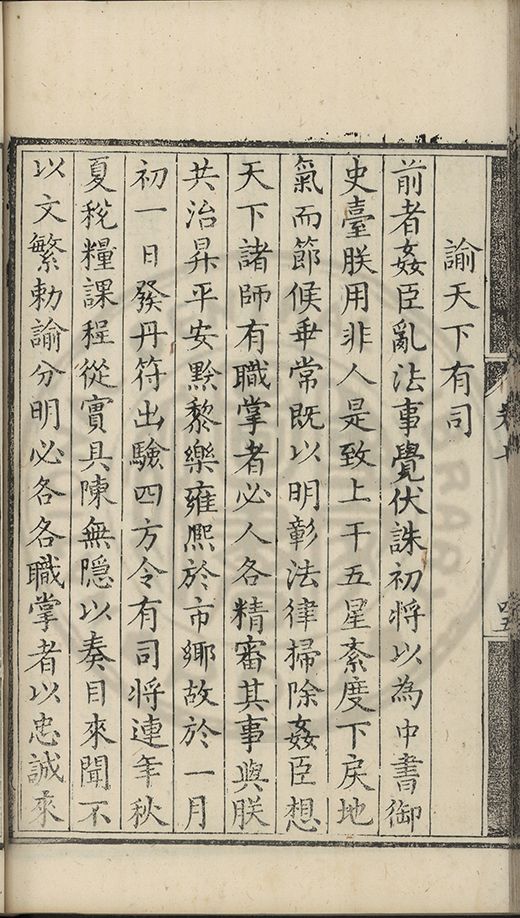 諭天下有司
前者姦臣亂法事覺伏誅初將以為中書御
史臺朕用非人是致上干五星紊度下戾地
氣而節候乖常既以明彰法律掃除姦臣想
天下諸師有職掌者必人各精審其事與朕
共治昇平安黔黎樂雍熈於市鄉故於一月
初一日發丹符出驗四方令有司將連年秋
夏稅糧課程從實具陳無隱以奏目來聞不
以文繁勅諭分明必各各職掌者以忠誠來